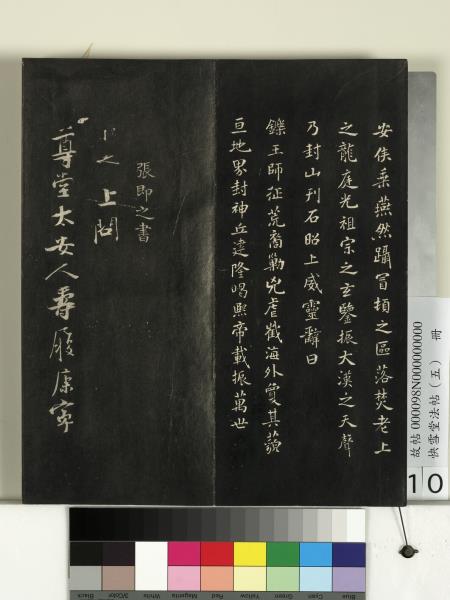 安侯乘燕然躡冒頓之區落焚老上
之龍庭光祖宗之玄鑒振大漢之天聲
乃封山刊石昭上威靈辭曰
鑠王師征荒裔勦兇虐截海外敻其藐
亘地界封神丘建隆喝熙帝載振萬世
張即之書
之上問
尊堂太安人尊履康寧
故帖000098N000000000 冊
快雪堂法帖(五)
10
Blue Cyan Green Yellow Red Magenta White 3/Color Black